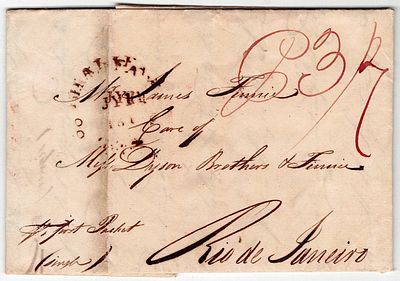 HALIFAX
P 3/7
Mr James Finnie
Care of
Messrs Dyson Brothers & Finnie
pr first Packet
(single)
Rio de Janeiro